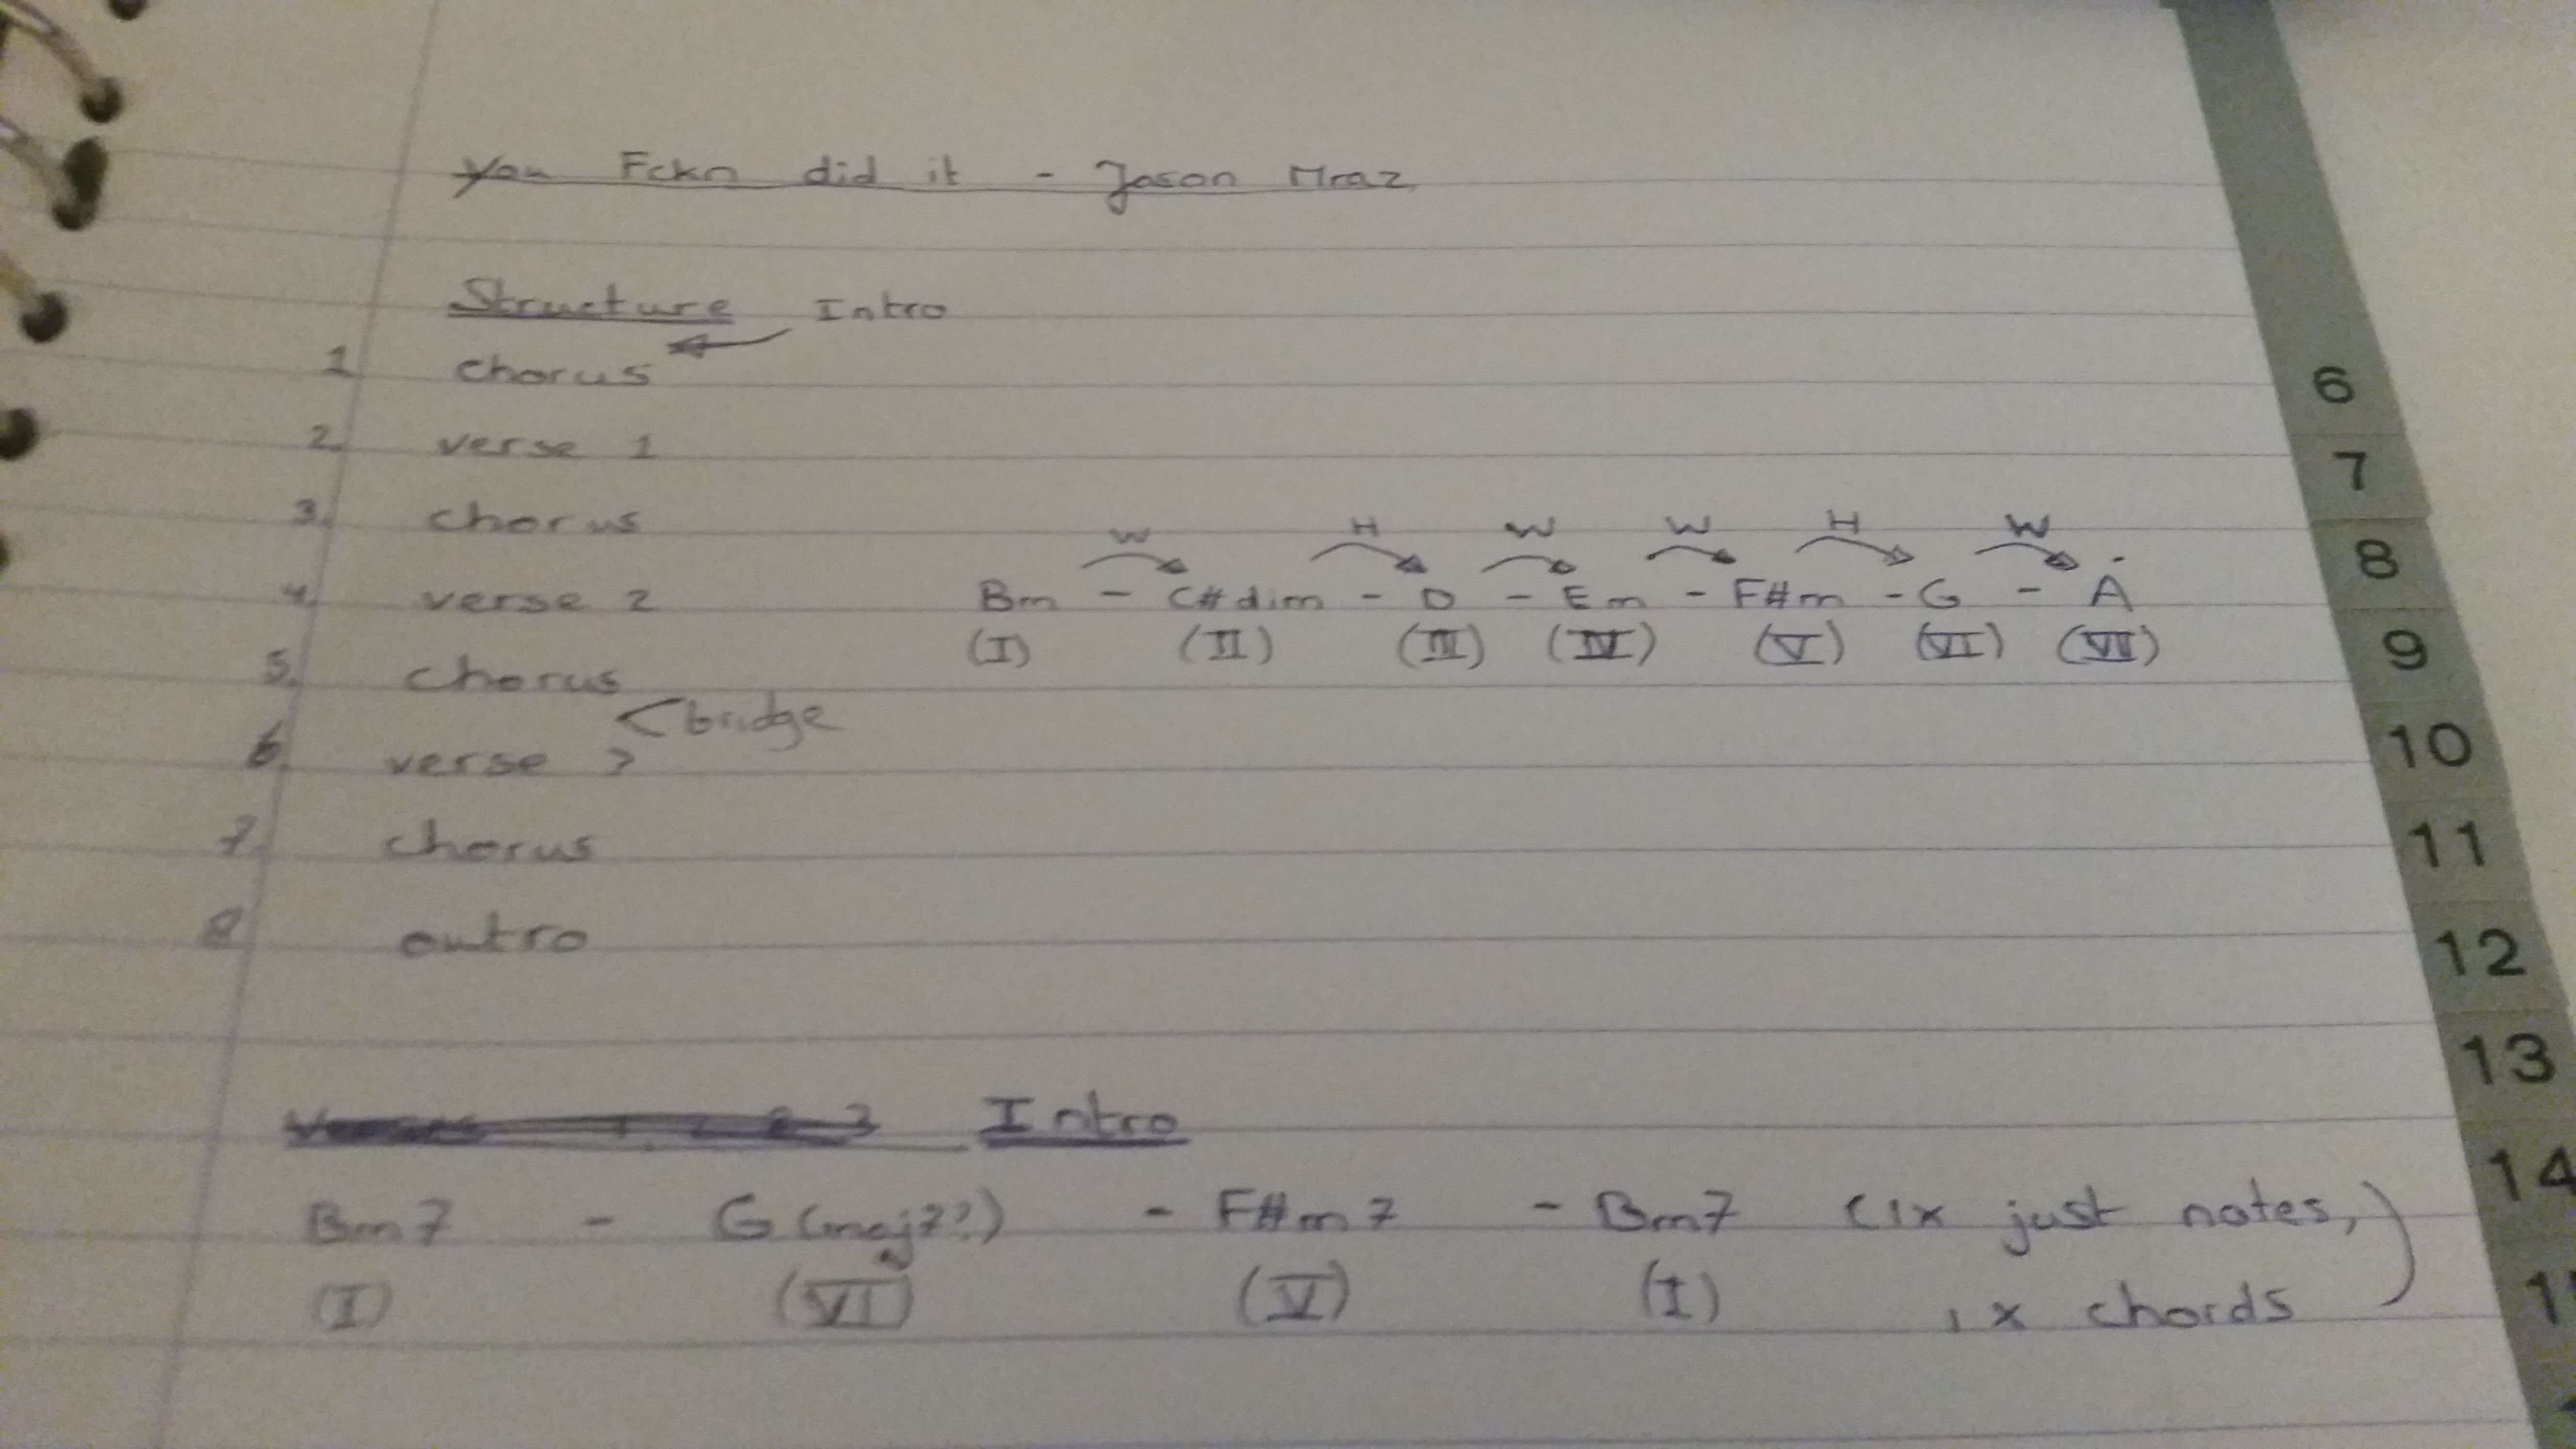 You Fckn did it - Jason Mraz
Structure Intro
1. chorus
2. verse 1
3. chorus
W H W W H W
4. verse 2 Bm - C#dim - D - Em - F#m - G - A
(I) (II) (III) (IV) (V) (VI) (VII)
5. chorus
<bridge
6. verse 3
7. chorus
8 outro
Intro
Bm7 - G(maj7?) - F#m7 - Bm7 (1x just notes,)
(I) (VI) (V) (I) 1x chords
6
7
8
9
10
11
12
13
14